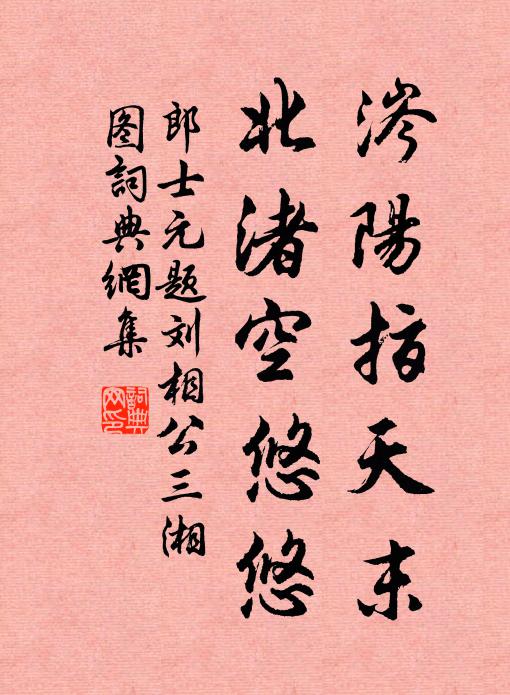 涔陽指天末
北渚空悠悠
郎士元题刘相公三湘
图詞典網集
詞典网印